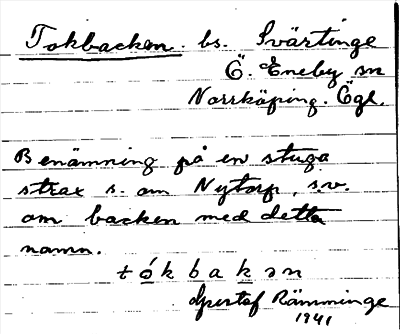 Tokbacken. bs. Svärtinge
Ö. Eneby sn
Norrköping. Ögl.
Benämning på en stuga
strax s. om Nytorp, s.v.
om backen med detta
namn.
tókbakən
Gustaf Rämminge
1941